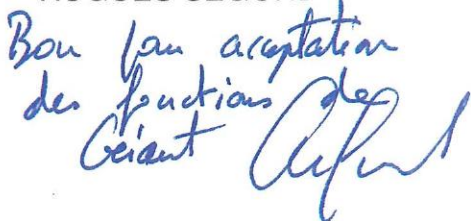 Bon pour acceptation
des fonctions de
Gérant